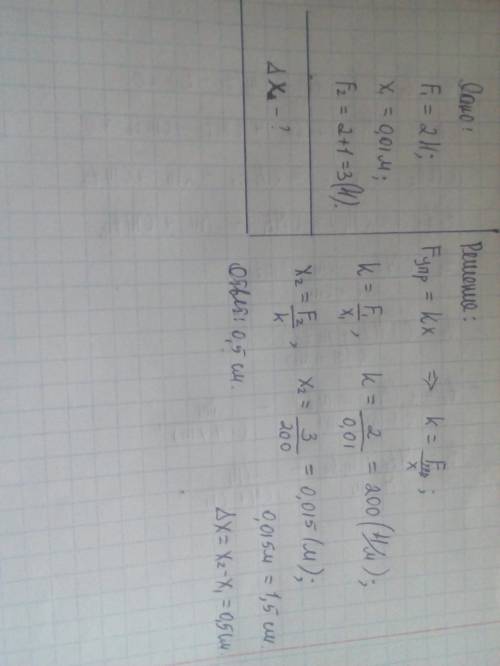 Дано:
F₁ = 2 Н;
x₁ = 0,01 м;
F₂ = 2+1 = 3 (Н).
Δx - ?
Решение:
Fупр = kx => k = Fупр/x;
k = F₁/x₁, k = 2/0,01 = 200 (Н/м);
x₂ = F₂/k, x₂ = 3/200 = 0,015 (м);
0,015 м = 1,5 см.
Δx = x₂ - x₁ = 0,5 см.
Ответ: 0,5 см.